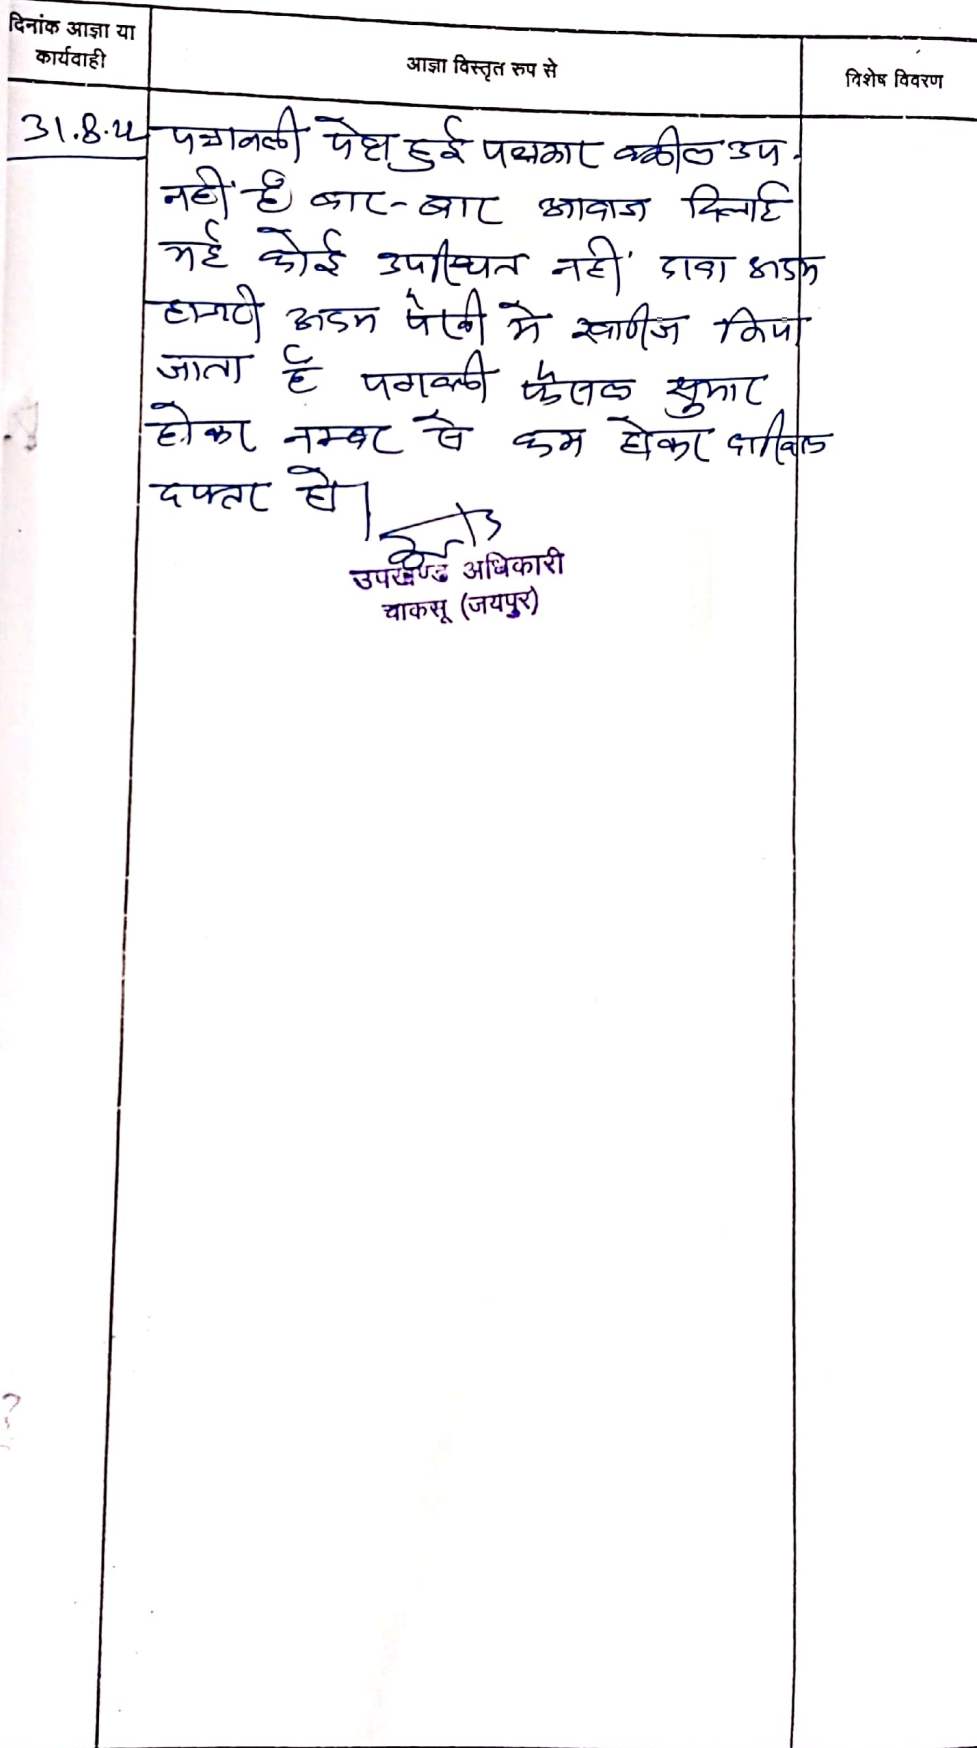 दिनांक आज्ञा या
कार्यवाही
आज्ञा विस्तृत रुप से
विशेष विवरण
31.8.
पत्रावली पेश हुई पक्षकार वकील उप.
नहीं है बार-बार आवाज दिलाई
गई कोई उपस्थित नहीं दावा अदम
हाजरी अदम पैरवी में खारीज किया
जाता है पत्रावली फैसल सुमार
होकर नम्बर से कम होकर दाखिल
दफ्तर हो।
उपखण्ड अधिकारी
चाकसू (जयपुर)